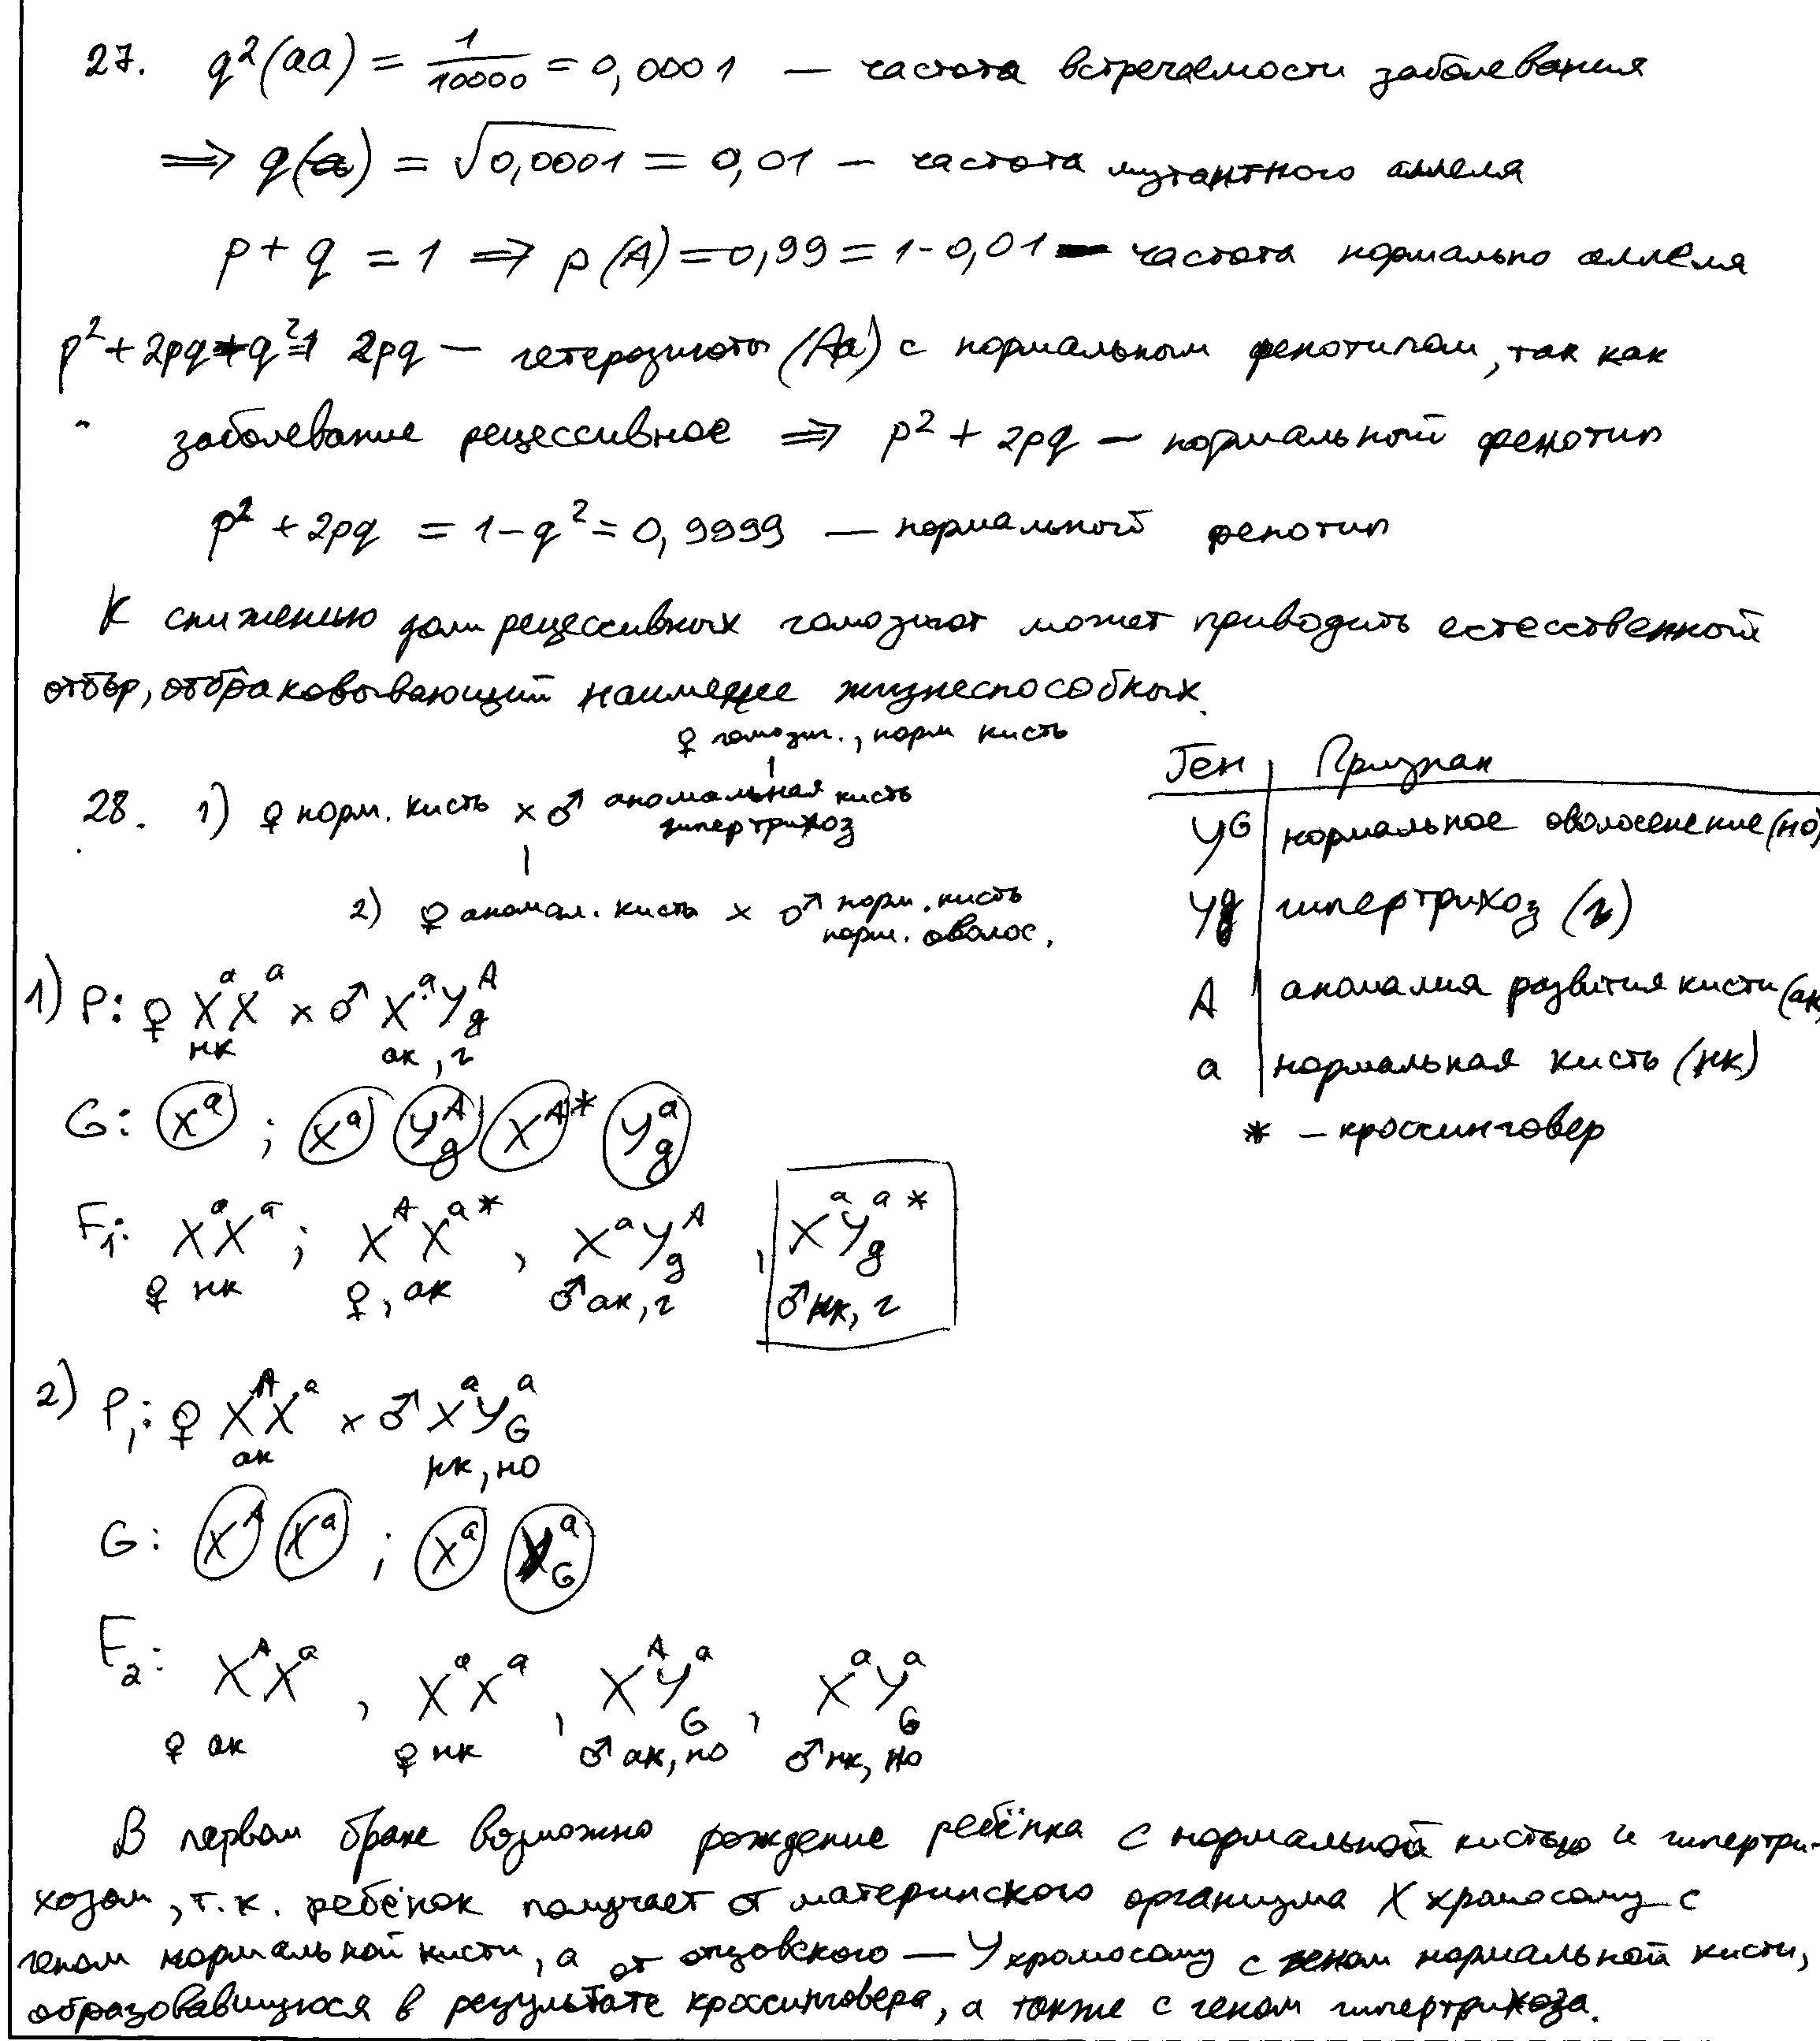 27. q²(aa) = 1/10000 = 0,0001 — частота встречаемости заболевания
⟹ q(a) = √0,0001 = 0,01 — частота мутантного аллеля
p + q = 1 ⟹ p(A) = 0,99 = 1 - 0,01 — частота нормально аллеля
p² + 2pq + q² = 1 2pq — гетерозиготы (Aa) с нормальным фенотипом, так как
заболевание рецессивное ⟹ p² + 2pq — нормальный фенотип
p² + 2pq = 1 - q² = 0,9999 — нормальный фенотип
К снижению доли рецессивных гомозигот может приводить естесственный
отбор, отбраковывающий наименее жизнеспособных.
♀ гомозиг., норм кисть
28. 1) ♀ норм. кисть × ♂ аномальная кисть
гипертрихоз
2) ♀ аномал. кисть × ♂ норм. кисть
норм. оволос.
Ген Признак
Y^G нормальное оволосенение (но)
Y^g гипертрихоз (г)
A аномалия развития кисти (ак)
a нормальная кисть (нк)
* – кроссинговер
1) P: ♀ X^a X^a × ♂ X^a Y_g^A
нк ак, г
G: X^a ; X^a Y_g^A X^A* Y_g^a
F₁: X^a X^a ; X^A X^a * , X^a Y_g^A , X^a Y_g^a *
♀ нк ♀, ак ♂ ак, г ♂ нк, г
2) P₁: ♀ X^A X^a × ♂ X^a Y_G^a
ак нк, но
G: X^A X^a ; X^a Y_G^a
F₂: X^A X^a , X^a X^a , X^A Y_G^a , X^a Y_G^a
♀ ак ♀ нк ♂ ак, но ♂ нк, но
В первом браке возможно рождение ребёнка с нормальной кистью и гипертри-
хозом, т.к. ребёнок получает от материнского организма X хромосому с
геном нормальной кисти, а от отцовского — Y хромосому с геном нормальной кисти,
образовавшуюся в результате кроссинговера, а также с геном гипертрихоза.